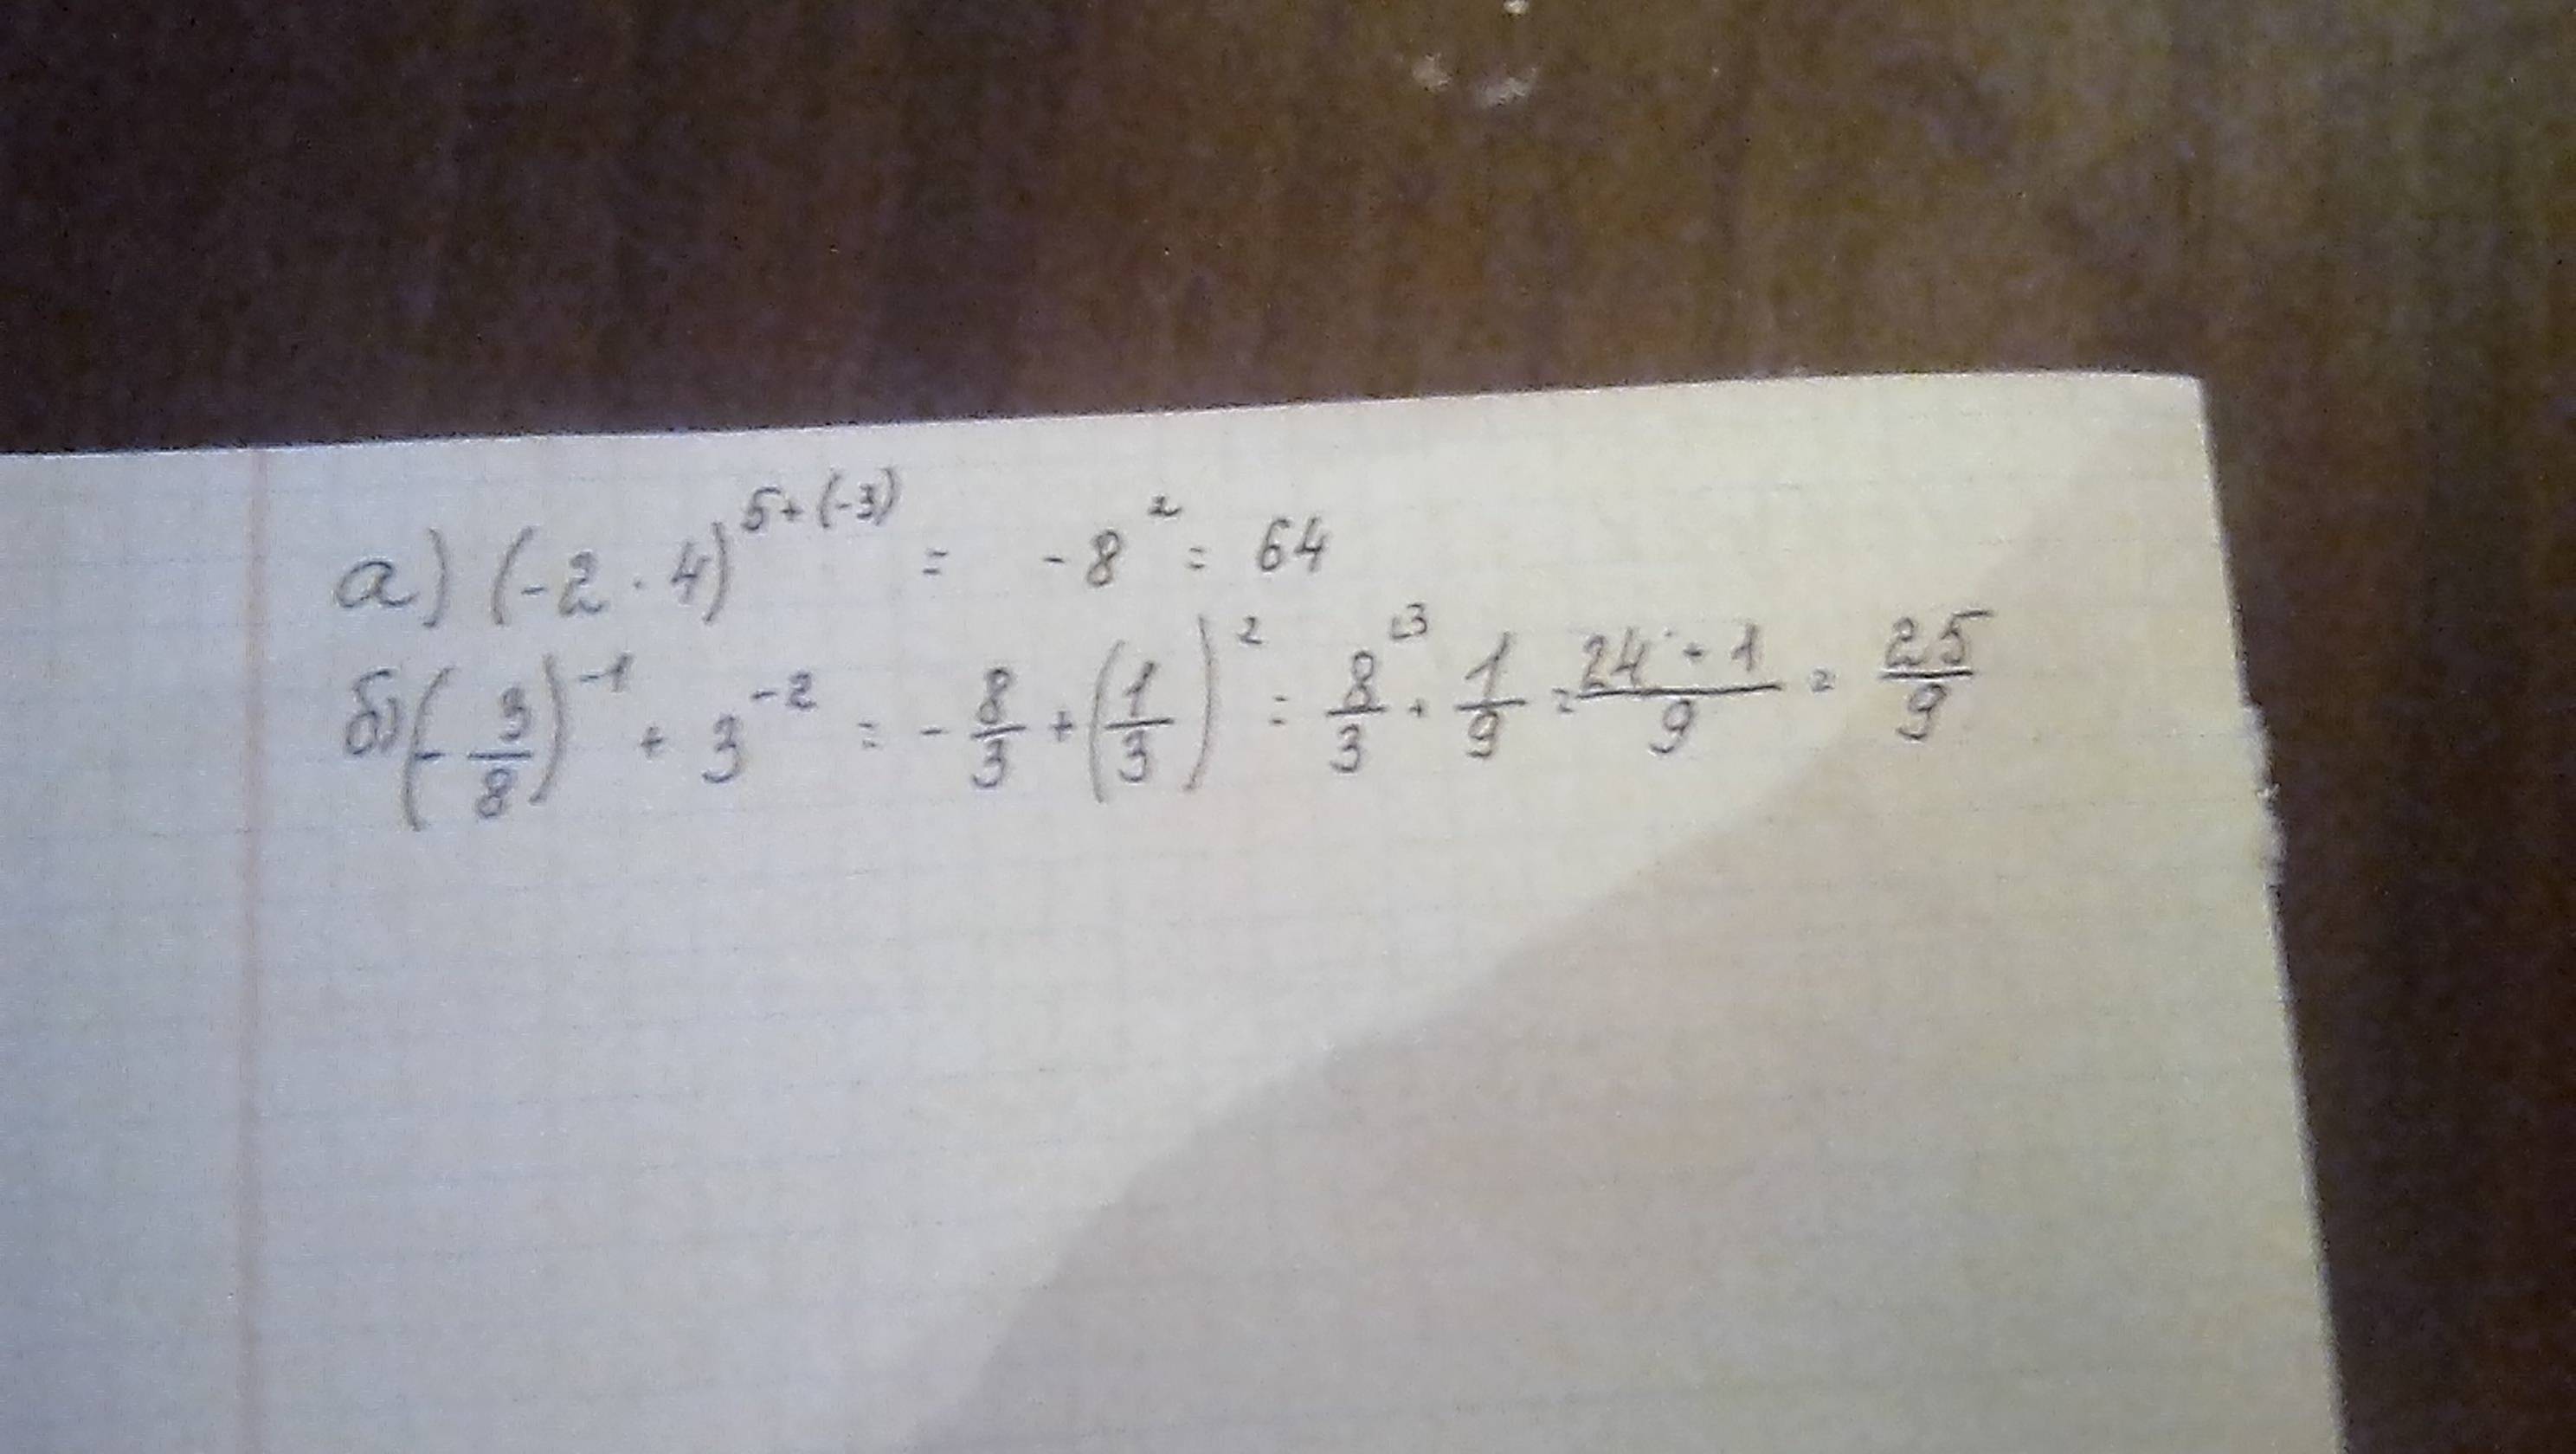 а) (-2 · 4)^{5+(-3)} = -8^2 = 64
б) (-\frac{3}{8})^{-1} + 3^{-2} = -\frac{8}{3} + (\frac{1}{3})^2 = \frac{8}{3}^{\cdot 3} + \frac{1}{9} = \frac{24+1}{9} = \frac{25}{9}